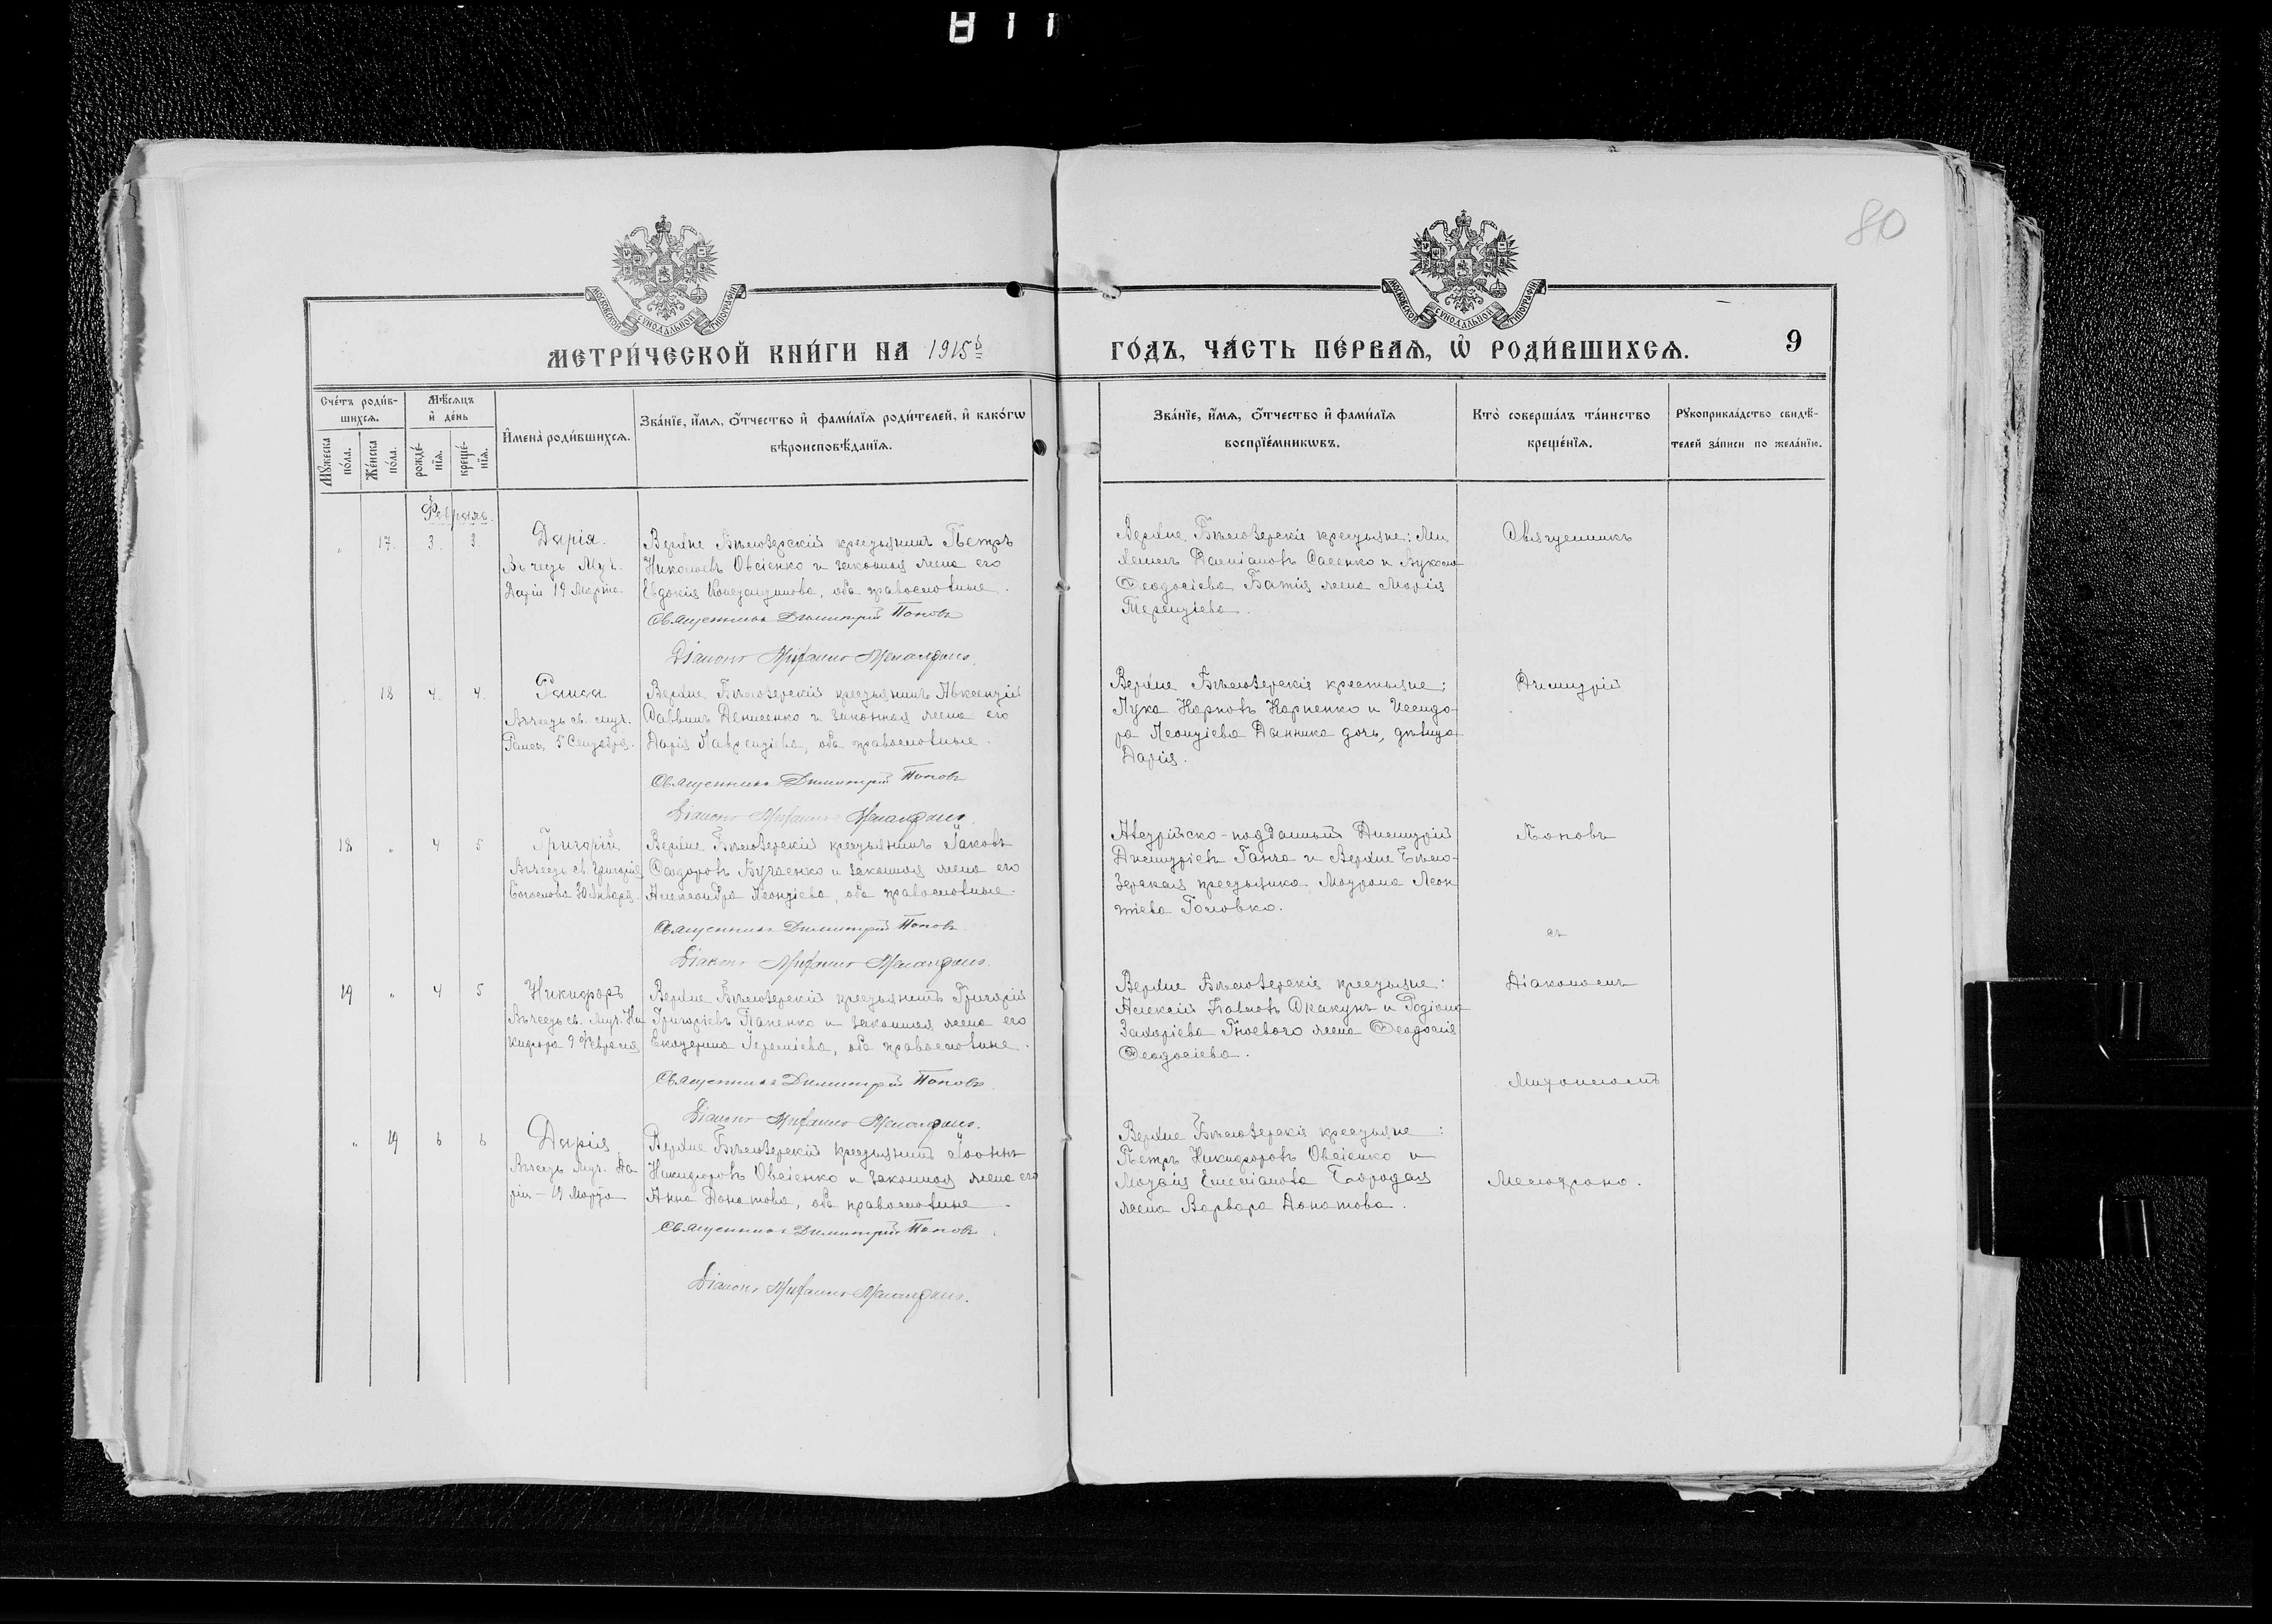 811
80
МОСКОВСКОЙ СѴНОДАЛЬНОЙ ТИПОГРАФІИ
МОСКОВСКОЙ СѴНОДАЛЬНОЙ ТИПОГРАФІИ
МЕТРИ́ЧЕСКОЙ КНИ́ГИ НА 1915й
ГО́ДЪ, ЧА́СТЬ ПЕ́РВАѦ, Ѿ РОДИ́ВШИХСѦ.
9
Сче́тъ роди́в-
шихсѧ.
Мѣ́сѧцъ
и҆ де́нь
Мꙋ́жеска по́ла.
Же́нска по́ла.
рожде́-
нїѧ.
креще́-
нїѧ.
И҆мена̀ роди́вшихсѧ.
Зва́нїе, и҆́мѧ, ѻ҆́тчество и҆ фами́лїѧ роди́телей, и҆ како́гѡ
вѣроисповѣ́данїѧ.
Зва́нїе, и҆́мѧ, ѻ҆́тчество и҆ фами́лїѧ
воспрїе́мникѡвъ.
Кто̀ соверша́лъ та́инство
креще́нїѧ.
Рꙋкоприкла́дство свидѣ́-
телей за́писи по жела́нїю.
Февраль.
" 17. 3. 3
Дарія.
Въ честь Муч.
Дарiи 19 Марта
Верхне Бѣлозерскій крестьянинъ Петръ
Николаевъ Овсіенко и законная жена его
Евдокія Константинова, оба православные.
Священникъ Димитрій Поповъ
Діаконъ Митрофанъ
Верхне Бѣлозерскіе крестьяне:
Даміановъ Саенко и
Ѳеодосіева жена Марія
Терентіева.
Священникъ
18 4. 4.
Раиса
Въ честь св. муч.
Раисы 5 Сентября.
Верхне Бѣлозерскій крестьянинъ Авксентій
Саввинъ Денисенко и законная жена его
Дарія Лаврентіева, оба православные.
Священникъ Димитрій Поповъ
Діаконъ Митрофанъ
Верхне Бѣлозерскіе крестьяне:
Лука Карповъ Карпенко и Исидо-
ра Леонтіева Данника дочь, дѣвица
Дарія.
Димитрій
18 " 4 5
Григорій
Въ честь св. Григорія
Богослова 30 Января.
Верхне Бѣлозерскій крестьянинъ Іаковъ
Ѳеодоровъ и законная жена его
Александра Леонтіева, оба православные.
Священникъ Димитрій Поповъ
Діаконъ Митрофанъ
Австрійско-подданный Димитрій
Димитріевъ Ганча и Верхне Бѣло-
зерская крестьянка Матрона Леон
тіева Головко.
Поповъ
съ
19 " 4 5
Никифоръ
Въ честь св. Муч. Ни
кифора 9 Февраля
Верхне Бѣлозерскій крестьянинъ Григорій
Григоріевъ Папенко и законная жена его
Екатерина Іереміева, оба православные.
Священникъ Димитрій Поповъ
Діаконъ Митрофанъ
Верхне Бѣлозерскіе крестьяне:
Алексій Павловъ Скакунъ и Родіона
Захаріева Гноевого жена Ѳеодосія
Ѳеодосіева.
Діакономъ
" 19 6 6
Дарія
Въ честь Муч. Да
ріи – 19 Марта
Верхне Бѣлозерскій крестьянинъ Іоаннъ
Никифоровъ Овсіенко и законная жена его
Анна Донатова, оба православные.
Священникъ Димитрій Поповъ
Діаконъ Митрофанъ
Верхне Бѣлозерскіе крестьяне:
Петръ Никифоровъ Овсіенко и
Емеліанова Бородая
жена Варвара Донатова.